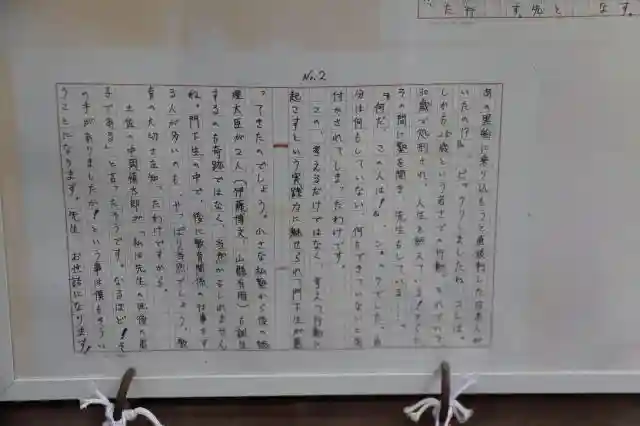 No.2
あの黒船に乗り込もうと直談判した日本人が
いたの!?』ビックリしましたね、コレは。
しかも25歳という若さでの行動。それでいて
30歳で処刑され、人生を終えている!
その間に塾を開き、先生もしている……。
『何だ、この人は!』ショックでした。自
分は何もしていない、何もできていないと気
付かされてしまったわけです。
この、考えるだけではなく、考えて行動を
起こすという実践力に魅せられて門下生が集
ってきたのでしょう。小さな私塾から後の総
理大臣が2人(伊藤博文、山縣有朋)も誕生
するのも奇跡ではなく、当然かもしれません
ね。門下生の中で、後に教育関係の仕事をす
る人が多いのも、やっぱり当然でしょう。教
育の大切さを知ったわけですから。
土佐の中岡慎太郎が「私は先生の死後の弟
子である」と言ったそうです。なるほど!そ
の手がありましたか!という事は僕もそうい
うことになります。先生、お世話になります!